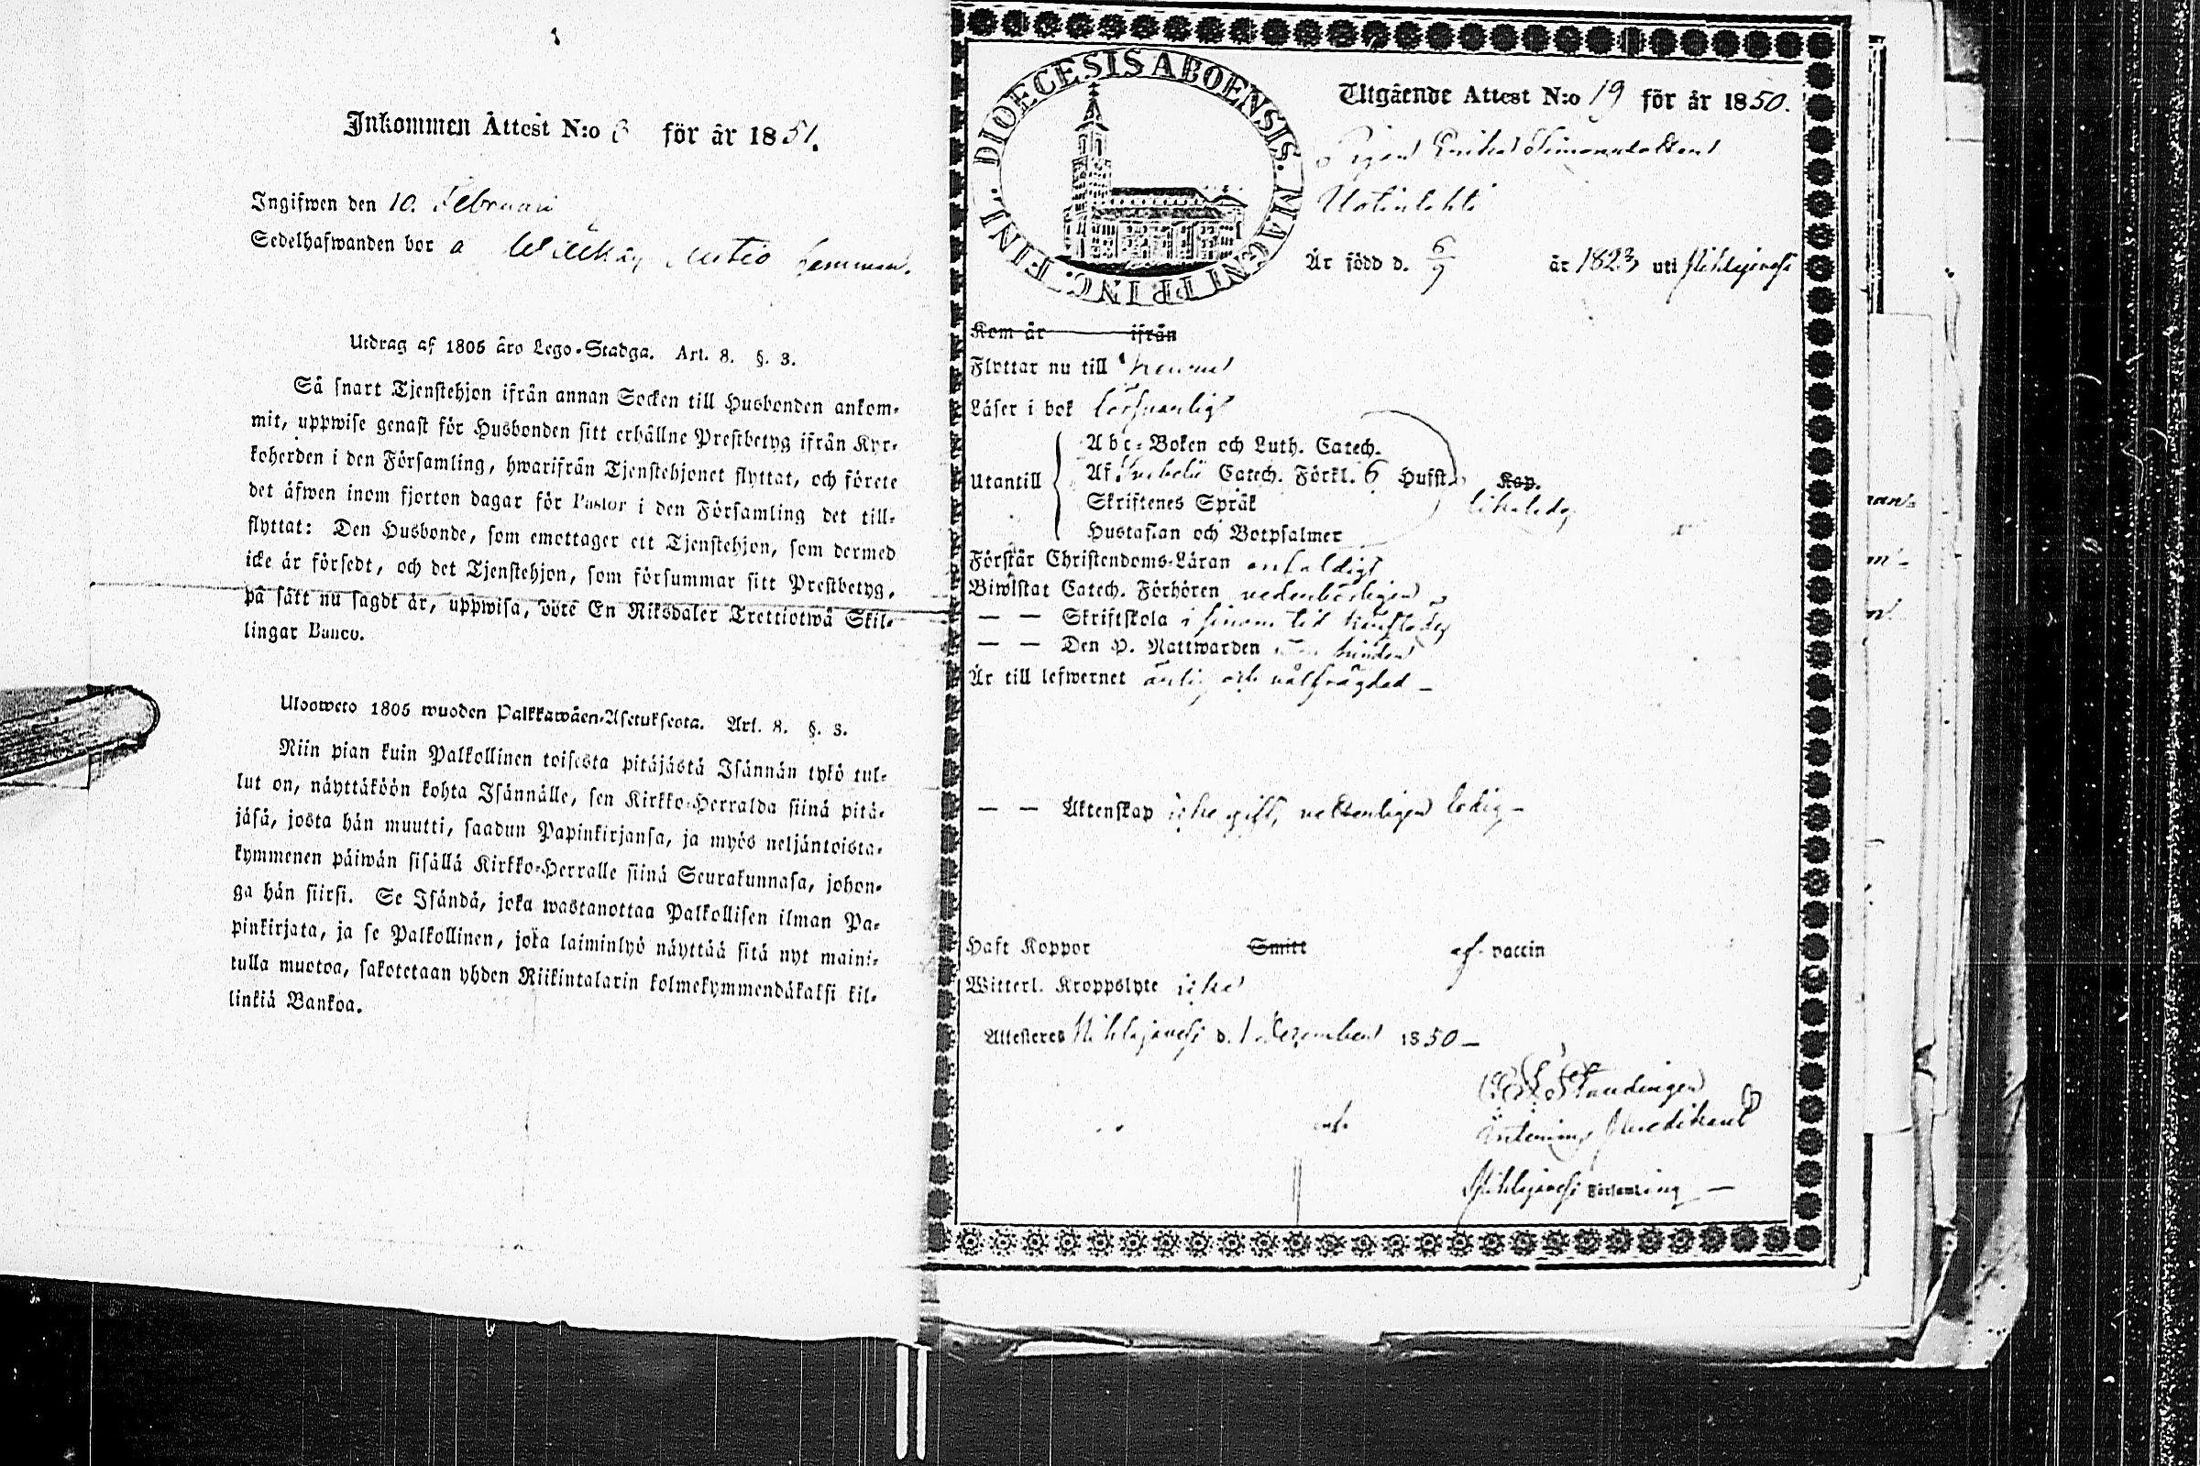 Inkommen Attest N:o för år 1851.
Ingifwen den 10. Februari
Sedelhafwanden bor a
Utdrag af 1805 års Lego-Stadga. Art. 8. §. 3.
Så snart Tjenstehjon ifrån annan Socken till Husbonden ankom-
mit, uppwise genast för Husbonden sitt erhållne Prestbetyg ifrån Kyr-
koherden i den Församling, hwarifrån Tjenstehjonet flyttat, och förete
det äfwen inom fjorton dagar för Pastor i den Församling det till-
flyttat: Den Husbonde, som emottager ett Tjenstehjon, som dermed
icke är försedt, och det Tjenstehjon, som försummar sitt Prestbetyg,
på sätt nu sagdt är, uppwisa, böte En Riksdaler Trettiotwå Skil-
lingar Banco.
Ulosweto 1805 wuoden Palkkawäen-Asetuksesta. Art. 8. §. 3.
Niin pian kuin Palkollinen toisesta pitäjästä Isännän tykö tul-
lut on, näyttäköön kohta Isännälle, sen Kirkko-Herralda siinä pitä-
jäsä, josta hän muutti, saadun Papinkirjansa, ja myös neljäntoista-
kymmenen päiwän sisällä Kirkko-Herralle siinä Seurakunnasa, johon-
ga hän siirsi. Se Isändä, joka wastanottaa Palkollisen ilman Pa-
pinkirjata, ja se Palkollinen, joka laiminlyö näyttää sitä nyt maini-
tulla muotoa, sakotetaan yhden Riikintalarin kolmekymmendäkaksi kil-
linkiä Bankoa.
DIOECESIS ABOENSIS. MAGNI PRINC. FINL.
Utgående Attest N:o 19 för år 1850.
Pigan Erika Simonsdotter
Uotinlahti
Är född d. 6/9 år 1823 uti
Kom år ifrån
Flyttar nu till
Läser i bok försvarligt
Utantill
Abc-Boken och Luth. Catech.
Af Catech. Förkl. 6 Hufst. Kap.
Skriftenes Språk
Hustaflan och Botpsalmer
Förstår Christendoms-Läran enfaldigt
Biwistat Catech. Förhören vederbörligen
— — Skriftskola i sinom tid
— — Den H. Nattwarden
Är till lefwernet ärlig och välfrägdad —
— — Äktenskap icke gift, ledig —
Haft Koppor Smitt af vaccin
Witterl. Kroppslyte icke
Attesteras d. 1 December 1850 —
Församling —